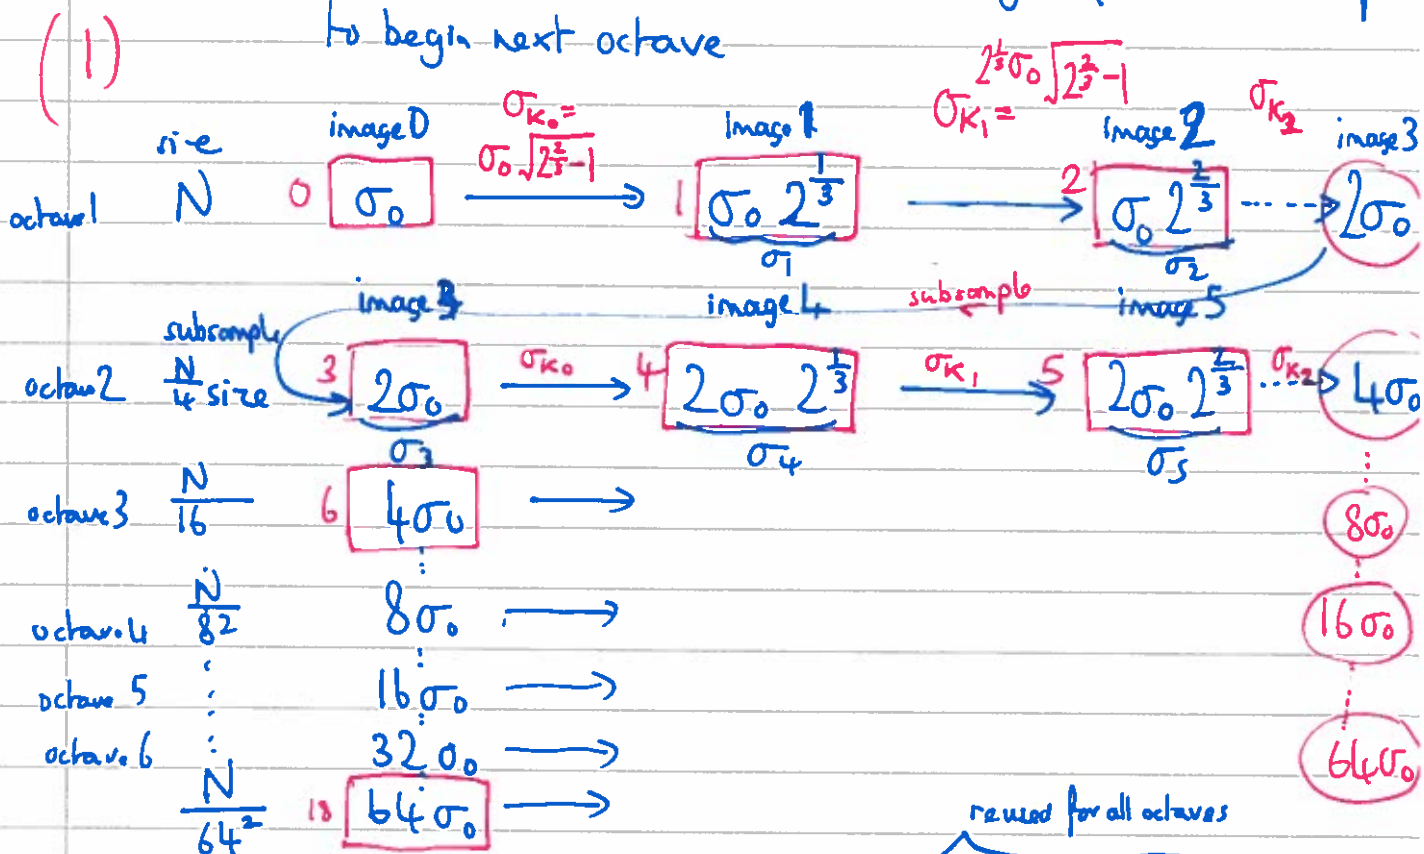 (1)
to begin next octave
size image0 σ_K₀ = σ₀√(2^(2/3)-1) image 1 σ_K₁ = 2^(1/3)σ₀√(2^(2/3)-1) image 2 σ_K₂ image3
octave1 N 0 σ₀ → 1 σ₀ 2^(1/3) → 2 σ₀ 2^(2/3) ⇢ 2σ₀
σ₁ σ₂
subsample image 3 image 4 subsample image 5
octave2 N/4 size 3 2σ₀ σ_K₀ → 4 2σ₀ 2^(1/3) σ_K₁ → 5 2σ₀ 2^(2/3) σ_K₂ ⇢ 4σ₀
σ₃ σ₄ σ₅
octave3 N/16 6 4σ₀ → 8σ₀
octave4 N/8² 8σ₀ → 16σ₀
octave 5 16σ₀ →
octave 6 32σ₀ → 64σ₀
N/64² 18 64σ₀ →
reused for all octaves